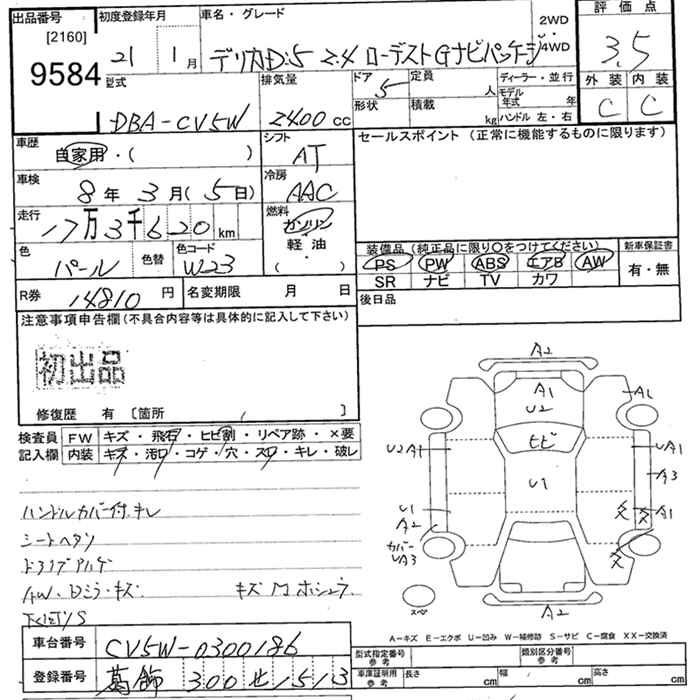 出品番号
[2160]
9584
初度登録年月
21 1月
車名・グレード
デリカD:5 2.4 ローデストGナビパッケージ
2WD
4WD
評価点
3.5
外装 内装
C C
型式
DBA-CV5W
排気量
2400cc
ドア
5
定員
人
形状
積載
kg
ディーラー・並行
モデル年式 年
ハンドル 左・右
車歴
自家用・( )
シフト
AT
セールスポイント(正常に機能するものに限ります)
車検
8年 3月(5日)
冷房
AAC
走行
17万3千620km
燃料
ガソリン
軽油
( )
色
パール
色替
色コード
W23
装備品(純正品に限り○をつけてください)
PS PW ABS エアB AW
SR ナビ TV カワ
新車保証書
有・無
R券 14810円
名変期限 月 日
後日品
注意事項申告欄(不具合内容等は具体的に記入して下さい)
初出品
修復歴 有 [箇所 ]
検査員記入欄
FW キズ・飛石・ヒビ割・リペア跡・×要
内装 キズ・汚レ・コゲ・穴・スレ・キレ・破レ
ハンドルカバー付、キレ
シートヘタリ
AW、Dミラーキズ
下廻りS
A2
A1
U2
A1
ヒビ
U2A1
UA1
A3
U1
U1
A2
A1
カバー
UA3
スペア
A2
A-キズ E-エクボ U-凹み W-補修跡 S-サビ C-腐食 XX-交換済
車台番号 CV5W-0300186
登録番号 葛飾 300 せ 1513
型式指定番号
参考
類別区分番号
参考
車庫証明用
参考
長さ cm
幅 cm
高さ cm